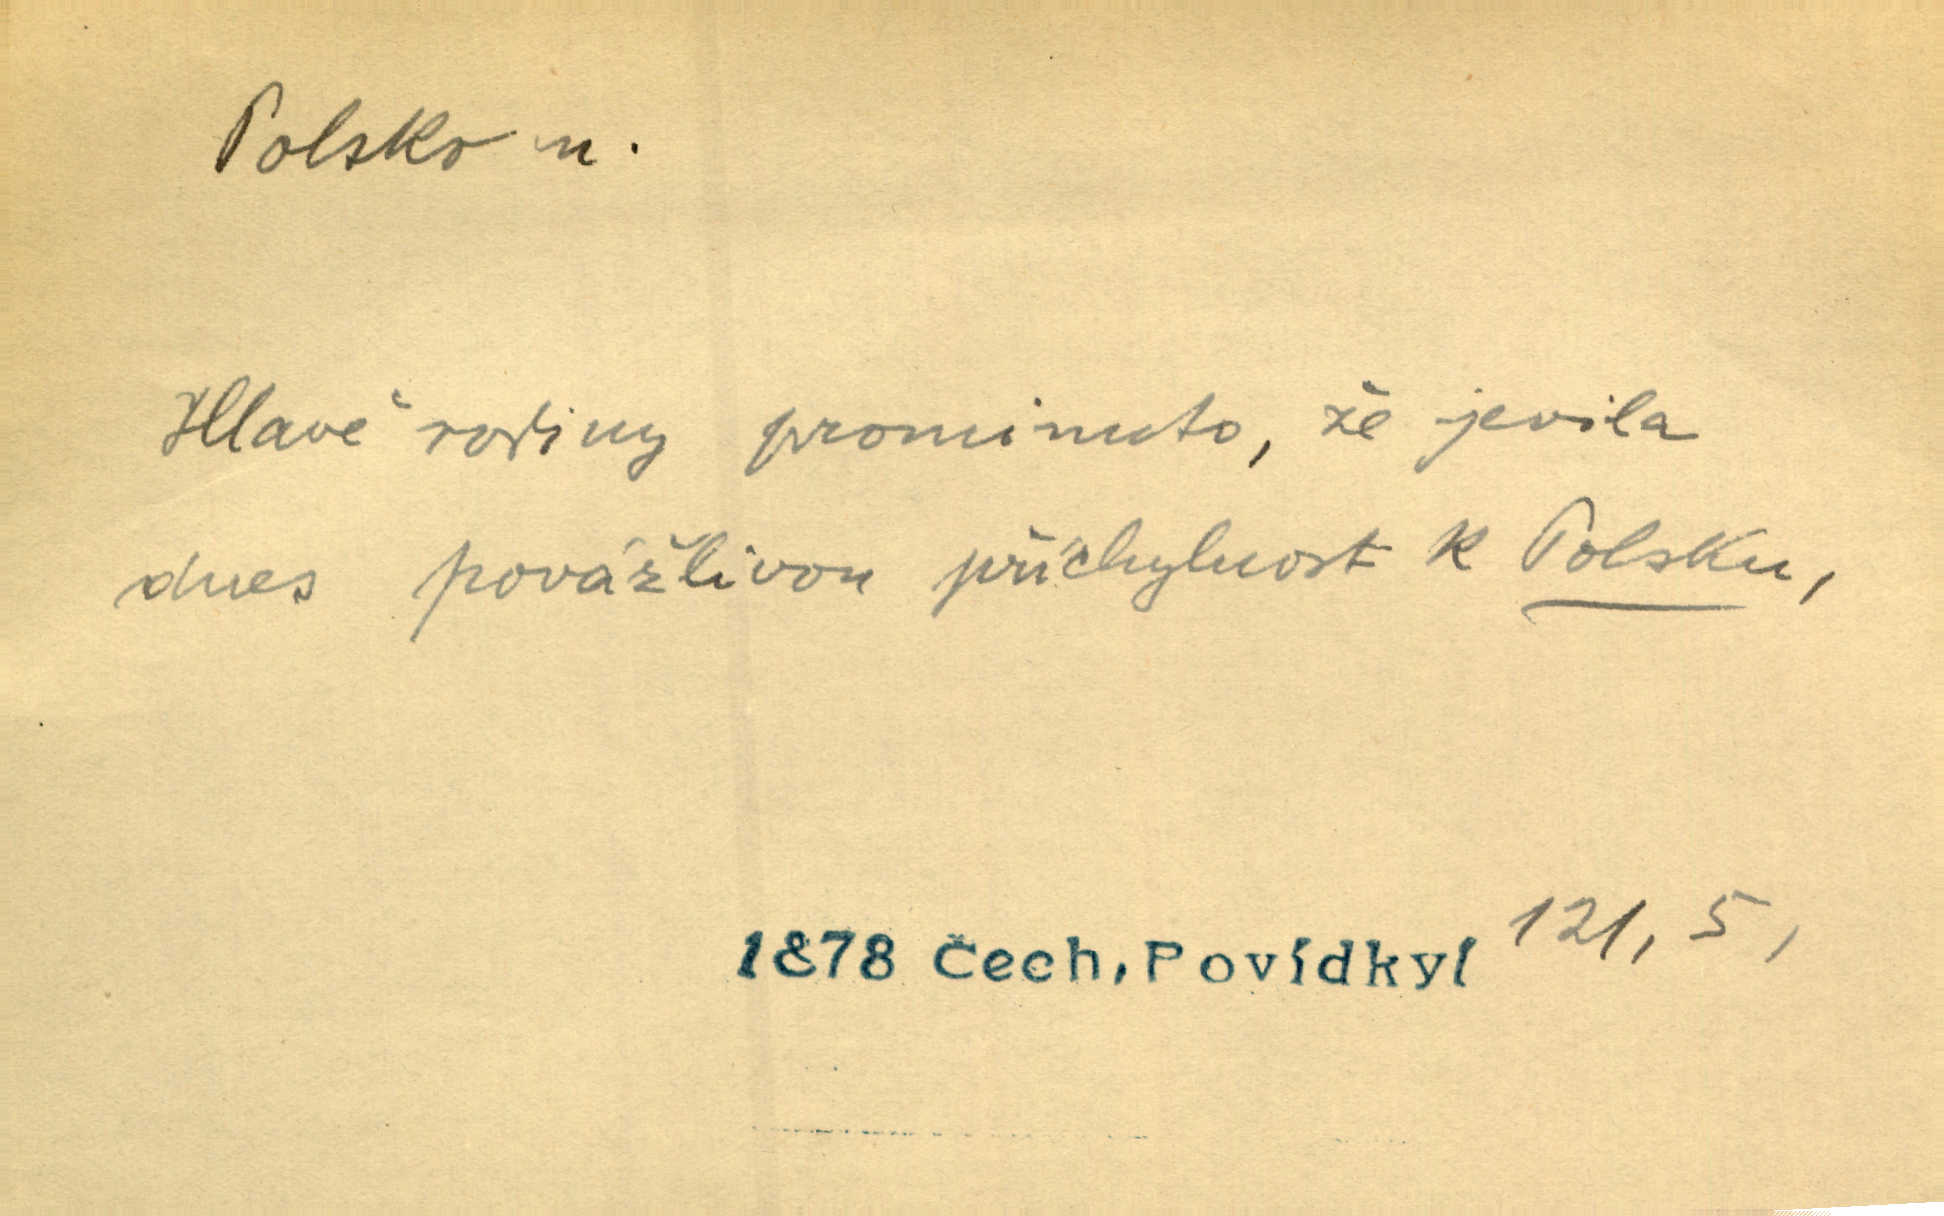 Polsko n.
Hlavě rodiny prominuto, že jevila
dnes povážlivou příchylnost k Polsku,
1878 Čech, PovídkyI 121, 5,